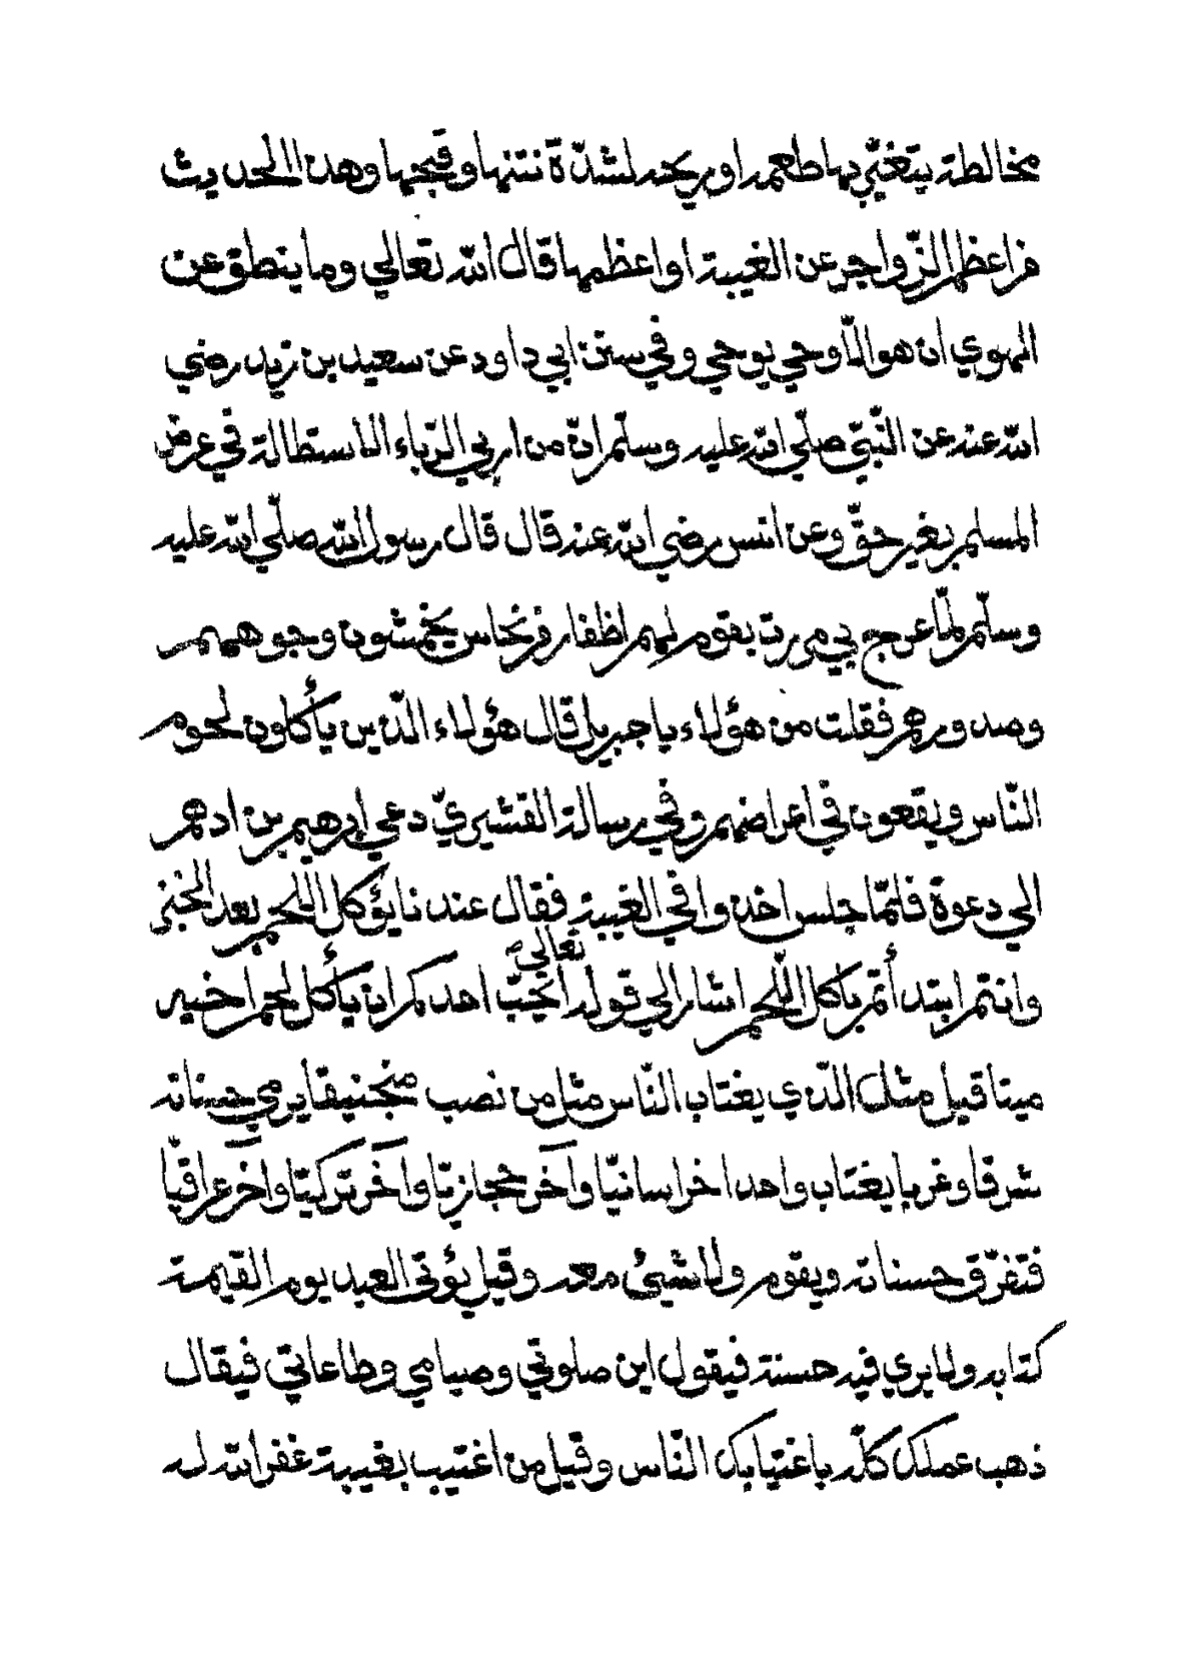 مخالطة يتغيّر بها طعمه او ريحه لشدّة نتنها وقبحها وهذا الحديث
من اعظم الزّواجر عن الغيبة او اعظمها قال الله تعالي وما ينطق عن
الهوي ان هو الّا وحي يوحي وفي سنن ابي داود عن سعيد بن زيد رضي
الله عنه عن النّبيّ صلّي الله عليه وسلّم انّ من اربي الرّباء الاستطالة في عرض
المسلم بغير حقّ وعن انس رضي الله عنه قال قال رسول الله صلّي الله عليه
وسلّم لمّا عرج بي مررت بقوم لهم اظفار من نحاس يخمشون وجوههم
وصدورهم فقلت من هؤلاء يا جبريل قال هؤلاء الّذين يأكلون لحوم
النّاس ويقعون في اعراضهم وفي رسالة القشيريّ دعي ابرهيم بن ادهم
الي دعوة فلمّا جلس اخذوا في الغيبة فقال عندنا يؤكل اللحم بعد الخبز
وانتم ابتدأتم باكل اللّحم اشار الي قوله تعالي أيحبّ احدكم ان يأكل لحم اخيه
ميتا قيل مثل الّذي يغتاب النّاس مثل من نصب منجنيقا يرمي حسناته
شرقا وغربا يغتاب واحدا خراسانيّا وآخر حجازيّا وآخر تركيّا وآخر عراقيّا
فتفرّق حسناته ويقوم ولا شيئ معه وقيل يؤتي العبد يوم القيمة
كتابه ولا يري فيه حسنة فيقول اين صلوتي وصيامي وطاعاتي فيقال
ذهب عملك كلّه باغتيابك النّاس وقيل من اغتيب بغيبة غفر الله له